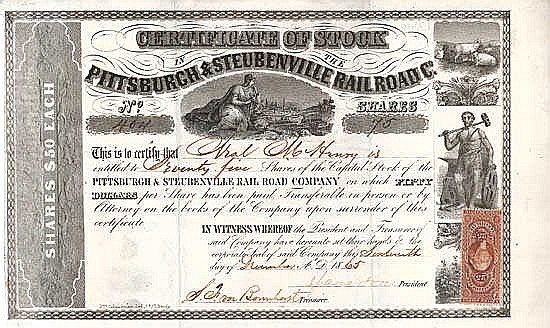 CERTIFICATE OF STOCK
IN THE
PITTSBURGH & STEUBENVILLE RAIL ROAD Co.
No SHARES
75
SHARES $50 EACH
This is to certify that Neal McHenry is
entitled to Seventy five Shares of the Capital Stock of the
PITTSBURGH & STEUBENVILLE RAIL ROAD COMPANY on which FIFTY
DOLLARS per Share has been paid. Transferable in person or by
Attorney on the books of the Company upon surrender of this
certificate.
IN WITNESS WHEREOF the President and Treasurer of
said Company have hereunto set their hands & the
corporate seal of said Company this
day of December A.D. 1865
President
Treasurer